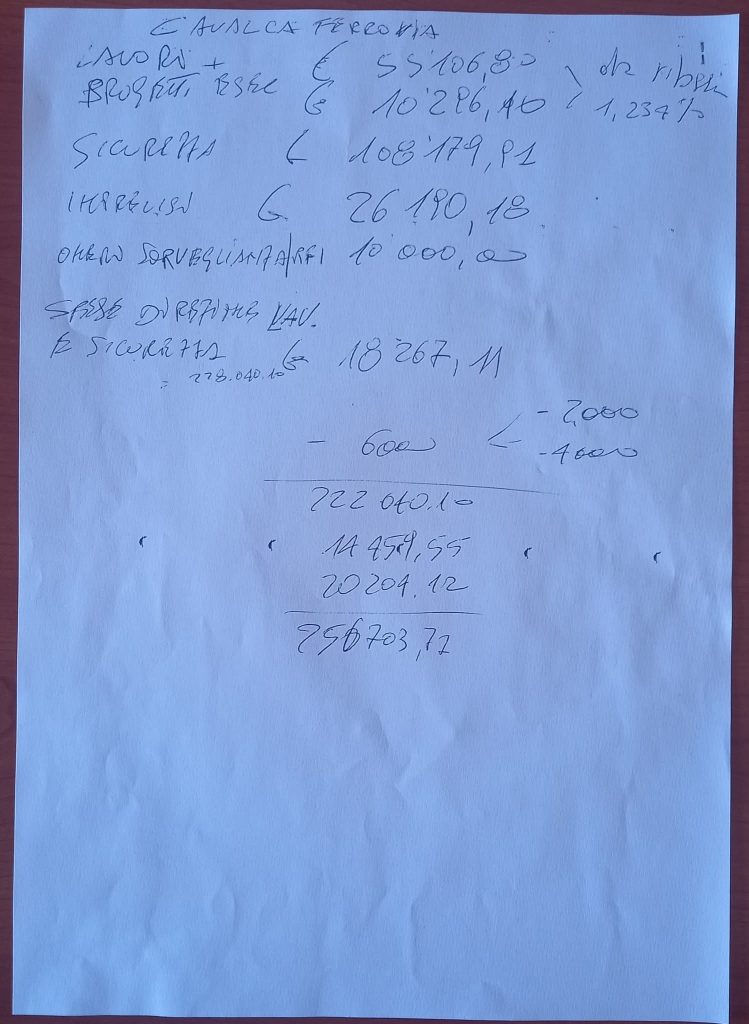 CAVALCA FERROVIA
LAVORI + € 55 106,80 da ribassi
PROGETTI ESEC € 10'296,10 1,234%
SICUREZZA € 108'179,91
IMPREVISTI € 26 190,18
ONERI SORVEGLIANZA RFI 10 000,00
SPESE DIREZIONE LAV.
E SICUREZZA € 18'267,11
= 228.040.10
- 2,000
- 6000
- 4000
222 040.10
14 459,55
20 204.12
256703,77